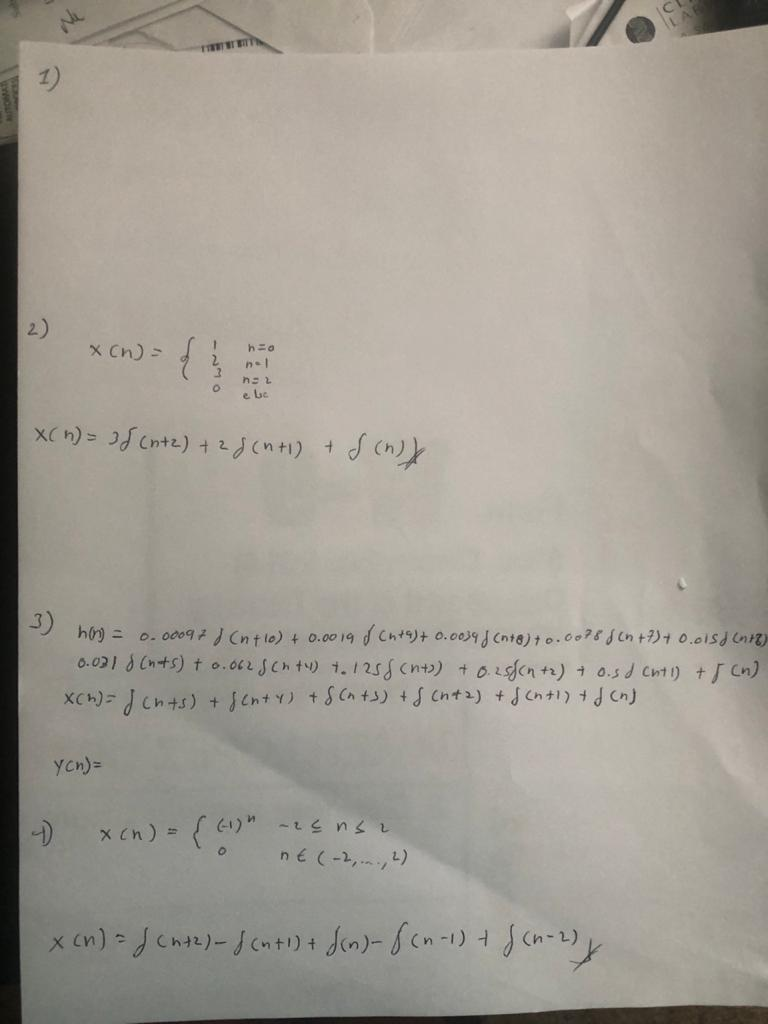 1)
2)
x(n) = { 1 n=0
2 n=1
3 n=2
0 else
x(n) = 3δ(n+2) + 2δ(n+1) + δ(n)
3) h(n) = 0.00097 δ(n+10) + 0.0019 δ(n+9) + 0.0039 δ(n+8) + 0.0078 δ(n+7) + 0.015 δ(n+6)
0.031 δ(n+5) + 0.062 δ(n+4) + .125 δ(n+3) + 0.25 δ(n+2) + 0.5 δ(n+1) + δ(n)
x(n) = δ(n+5) + δ(n+4) + δ(n+3) + δ(n+2) + δ(n+1) + δ(n)
y(n) =
4) x(n) = { (-1)ⁿ -2 ≤ n ≤ 2
0 n ∈ (-2,...,2)
x(n) = δ(n+2) - δ(n+1) + δ(n) - δ(n-1) + δ(n-2)